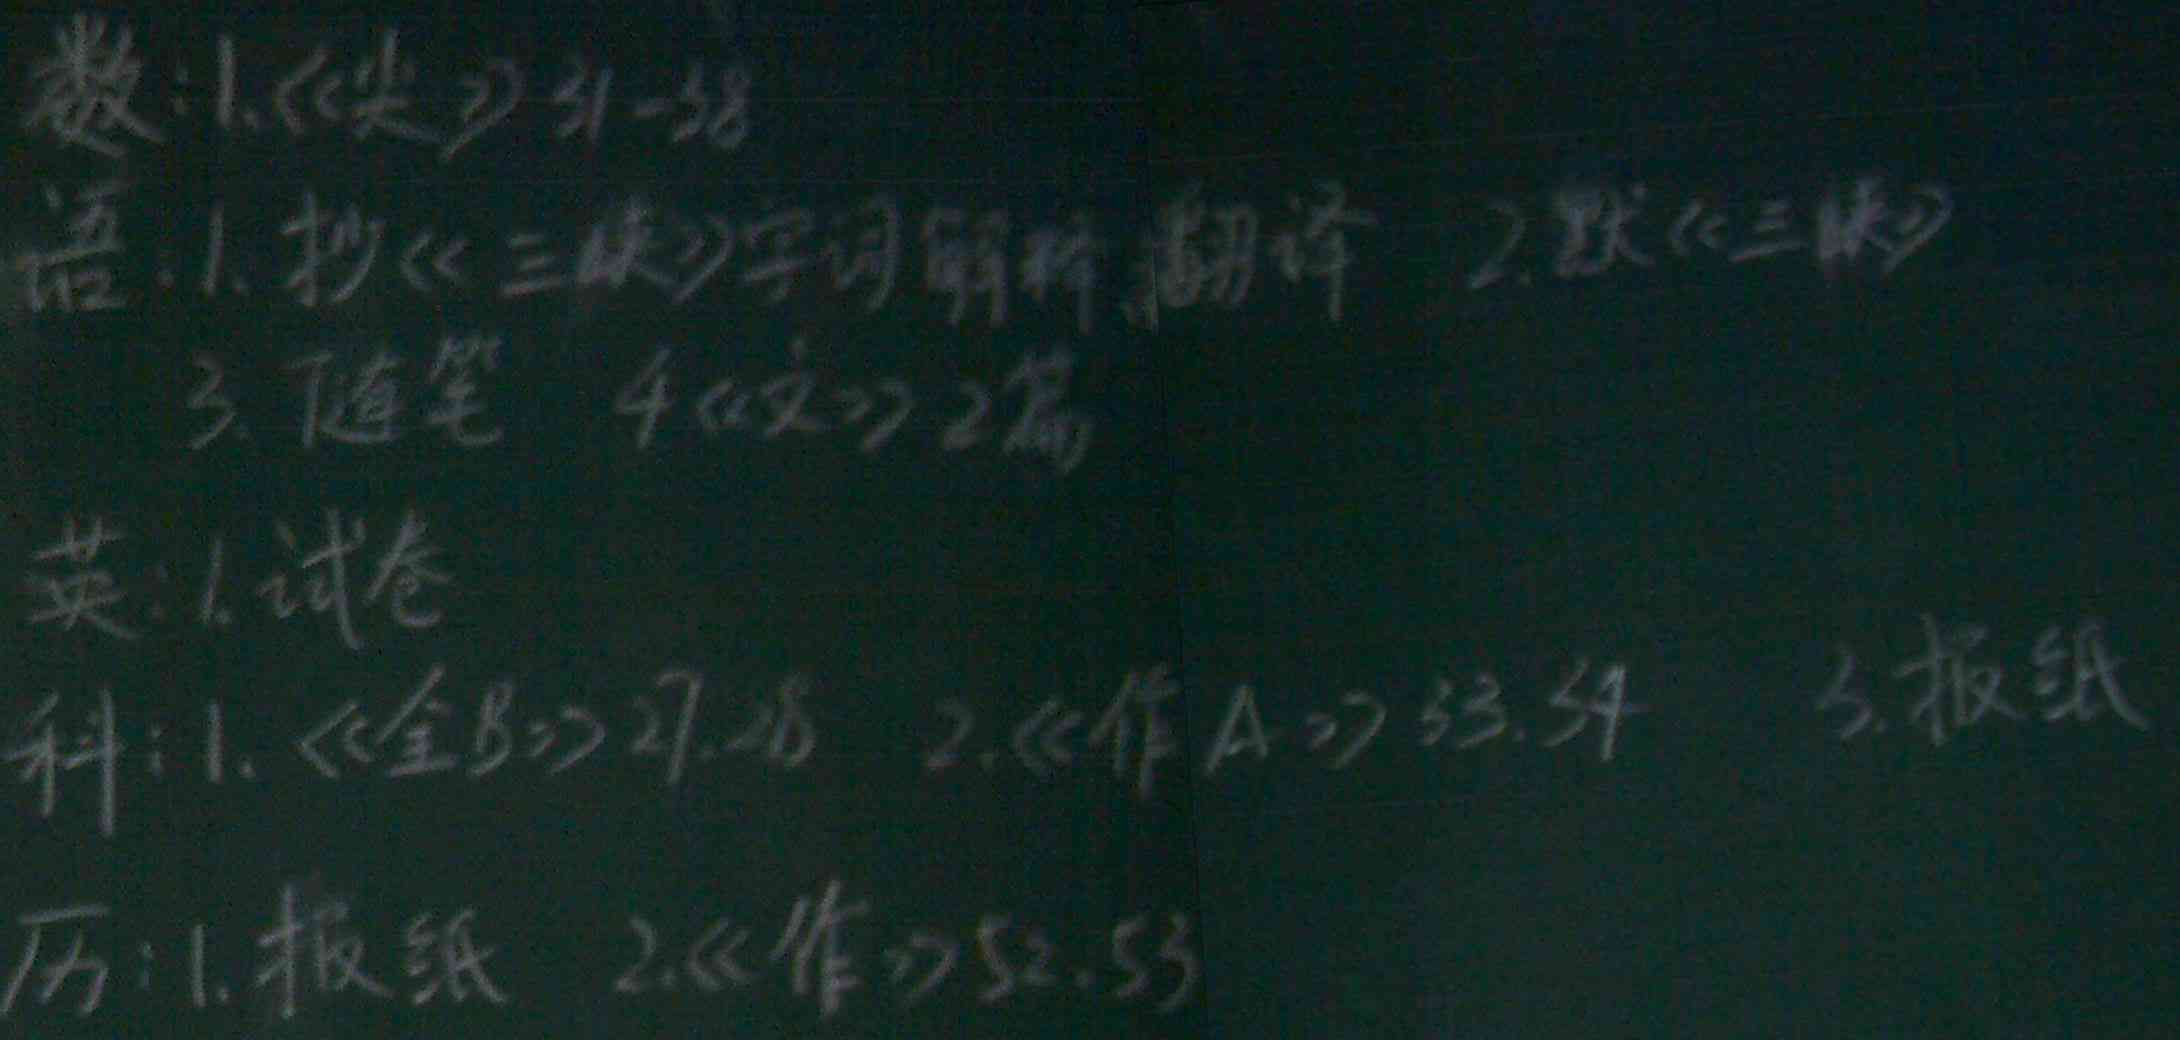 数:1.《尖》31-38
语:1.抄《三峡》字词解释、翻译 2.默《三峡》
3.随笔 4《文》2篇
英:1.试卷
科:1.《全B》27.28 2.《作A》53.54 3.报纸
历:1.报纸 2.《作》52.53